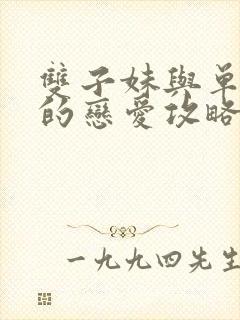 雙子妹與單
的戀愛攻略
一九九四先生